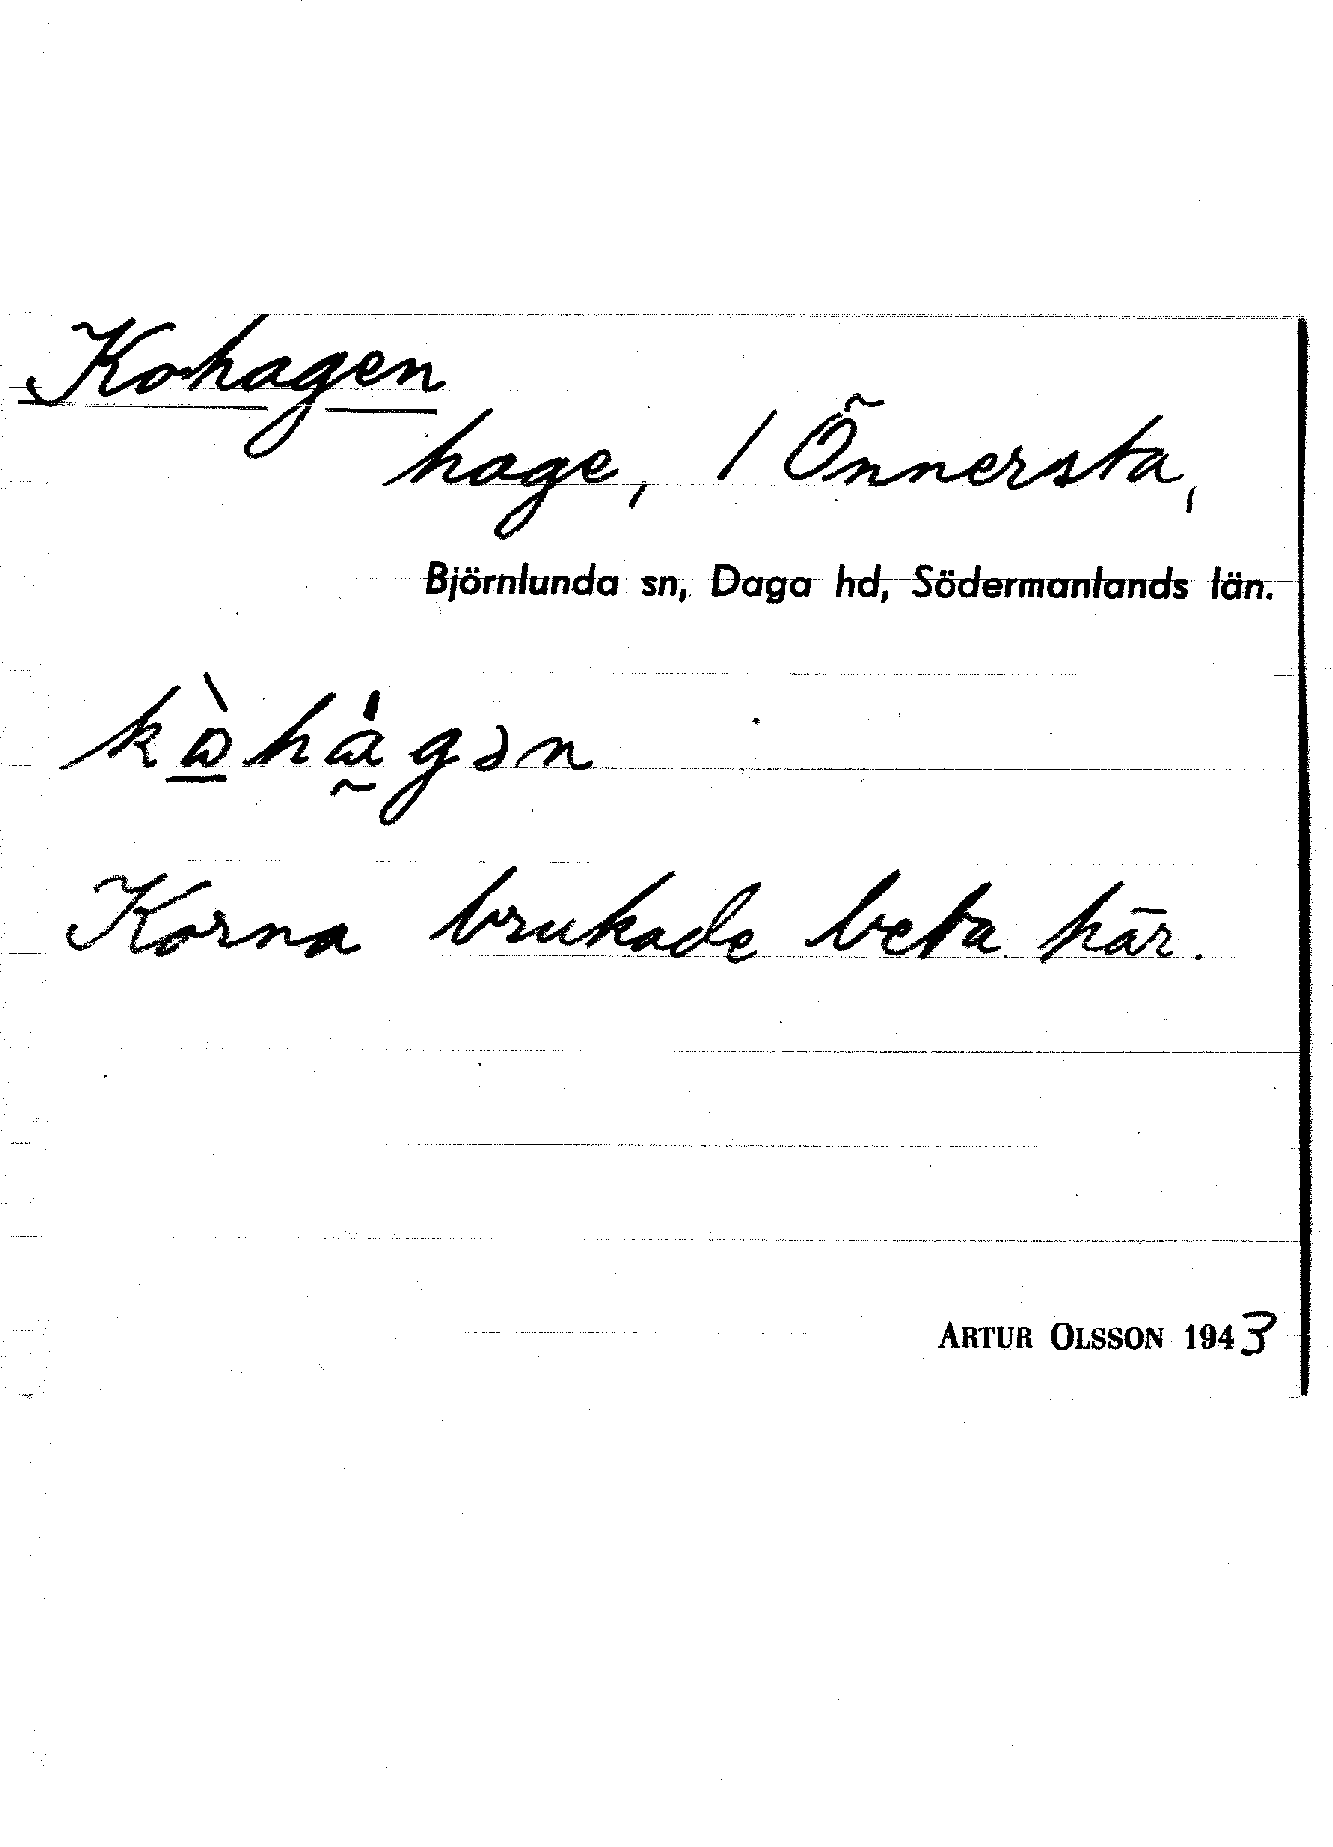 Kohagen
hage, / Önnersta,
Björnlunda sn, Daga hd, Södermanlands län.
kὼ̠hά̰gən
Korna brukade beta här.
ARTUR OLSSON 1943